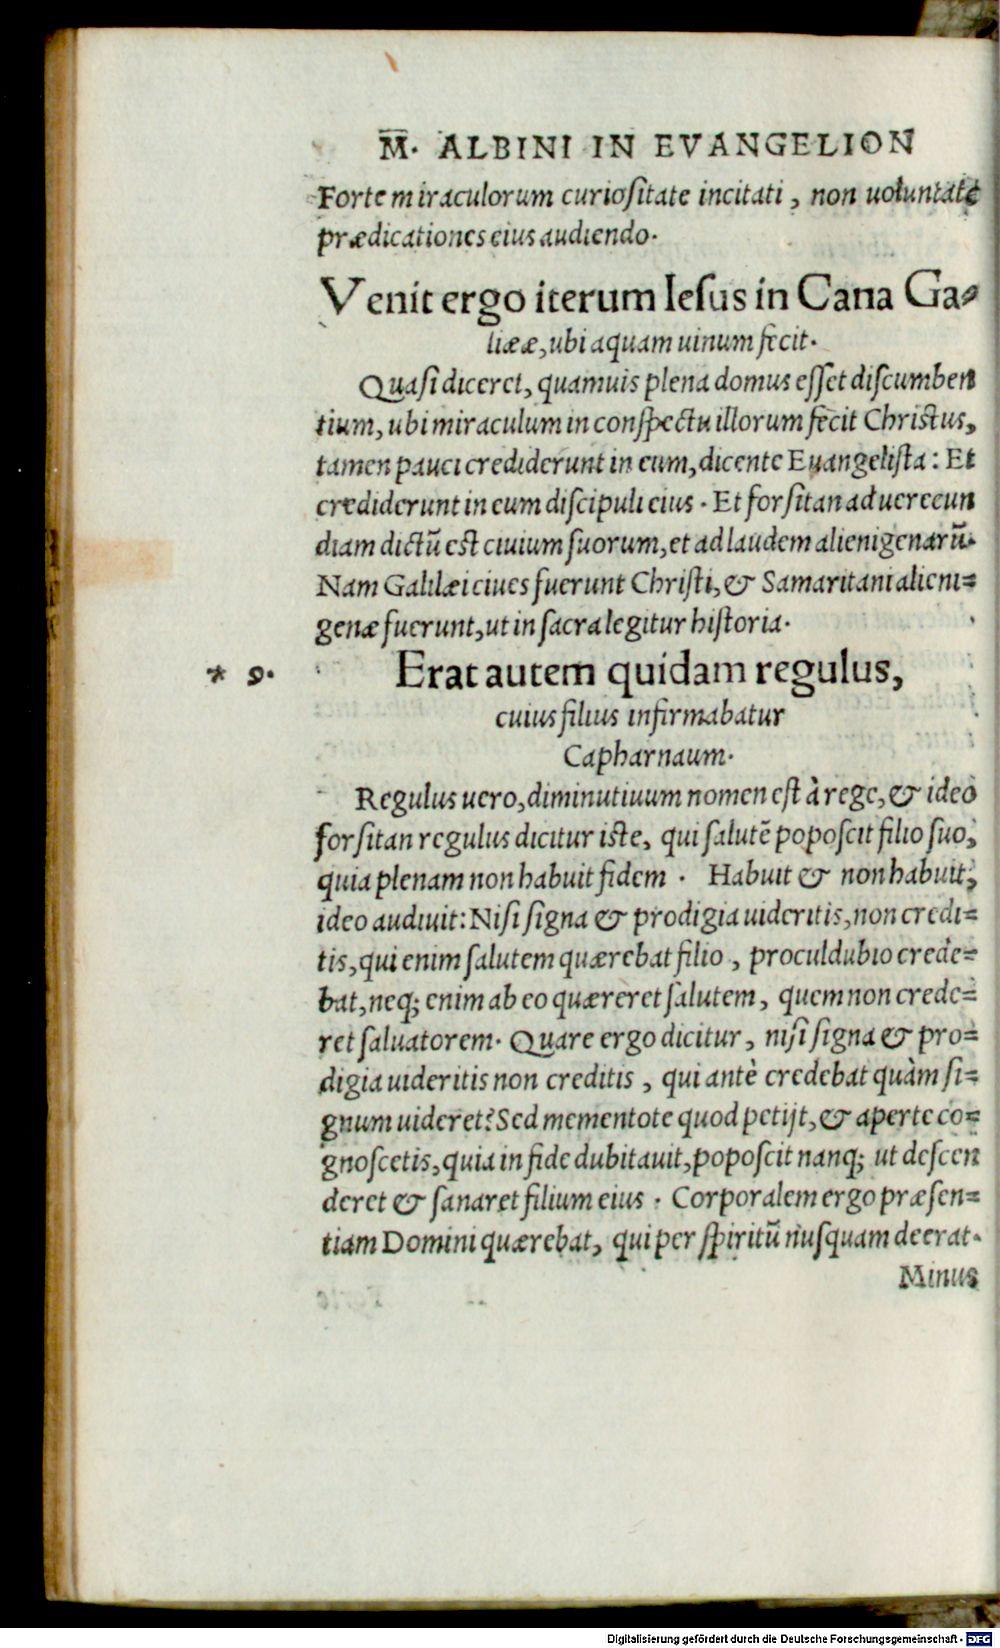 M̅. ALBINI IN EVANGELION
Forte miraculorum curiositate incitati, non uoluntate
prædicationes eius audiendo.
Venit ergo iterum Iesus in Cana Ga-
liææ, ubi aquam uinum fecit.
Quasi diceret, quamuis plena domus esset discumben
tium, ubi miraculum in conspectu illorum fecit Christus,
tamen pauci crediderunt in eum, dicente Euangelista: Et
crediderunt in eum discipuli eius. Et forsitan ad uerecun
diam dictū est ciuium suorum, et ad laudem alienigenarū.
Nam Galilæi ciues fuerunt Christi, & Samaritani alieni-
genæ fuerunt, ut in sacra legitur historia.
* 9.
Erat autem quidam regulus,
cuius filius infirmabatur
Capharnaum.
Regulus uero, diminutiuum nomen est à rege, & ideo
forsitan regulus dicitur iste, qui salutē poposcit filio suo,
quia plenam non habuit fidem. Habuit & non habuit,
ideo audiuit: Nisi signa & prodigia uideritis, non credi-
tis, qui enim salutem quærebat filio, proculdubio crede-
bat, neq; enim ab eo quæreret salutem, quem non crede-
ret saluatorem. Quare ergo dicitur, nisi signa & pro-
digia uideritis non creditis, qui antè credebat quàm si-
gnum uideret? Sed mementote quod petijt, & aperte co-
gnoscetis, quia in fide dubitauit, poposcit nanq; ut descen
deret & sanaret filium eius. Corporalem ergo præsen-
tiam Domini quærebat, qui per spiritū nusquam deerat.
Minus
Digitalisierung gefördert durch die Deutsche Forschungsgemeinschaft - DFG